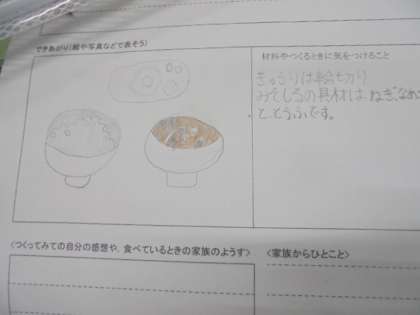 できあがり(絵や写真などで表そう)
材料やつくるときに気をつけること
きゅうりは絵切り
みそしるの具材はねぎ、なめ
こととうふです。
<つくってみての自分の感想や、食べているときの家族のようす>
<家族からひとこと>